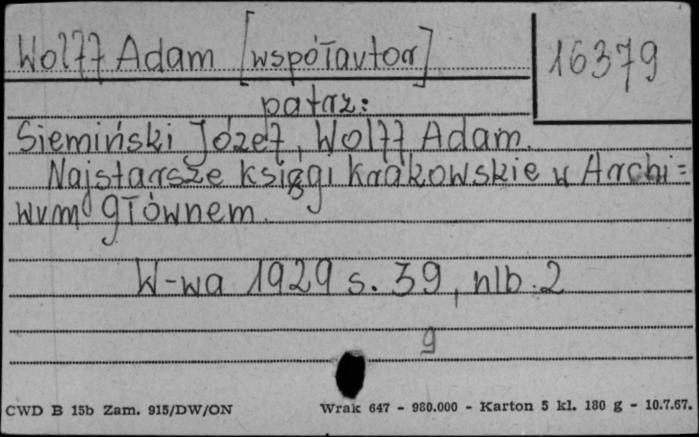 Wolff Adam [współautor]
16379
patrz:
Siemiński Józef, Wolff Adam.
Najstarsze księgi krakowskie w Archi=
wum głównem.
W-wa 1929 s. 39, nlb. 2
g
CWD B 15b Zam. 915/DW/ON Wrak 647 - 980.000 - Karton 5 kl. 180 g - 10.7.67.